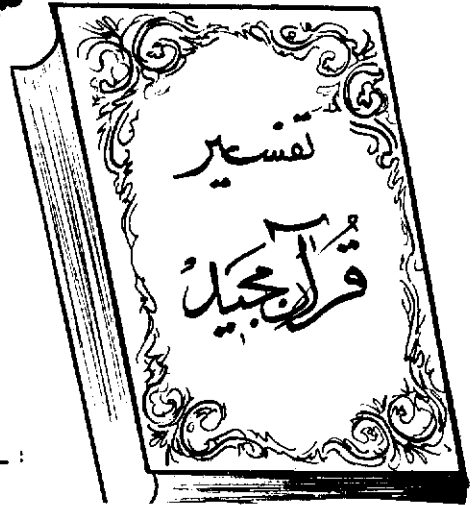 تفسير
قُرآن مجيدُ